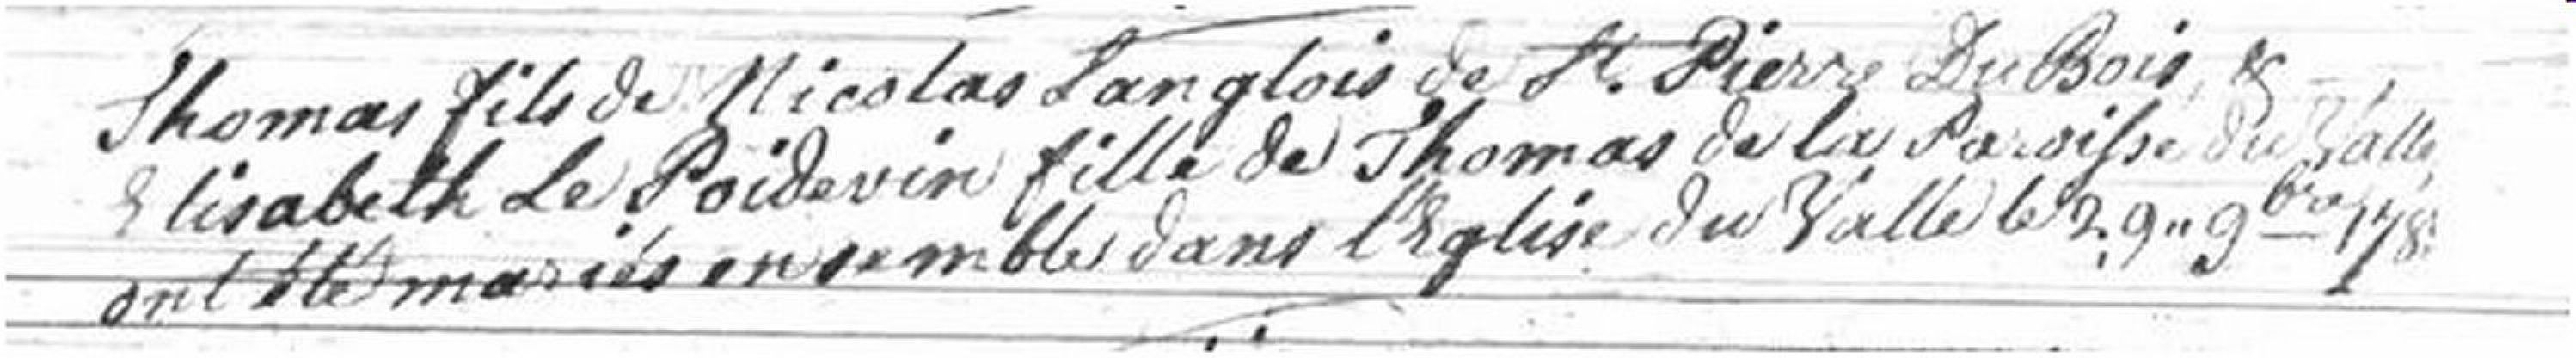 Thomas fils de Nicolas Langlois de St. Pierre Du Bois, &
Elisabeth Le Poidevin fille de Thomas de la Paroisse du Valle
ont été mariés ensemble dans l'Eglise du Valle le 29" 9bre